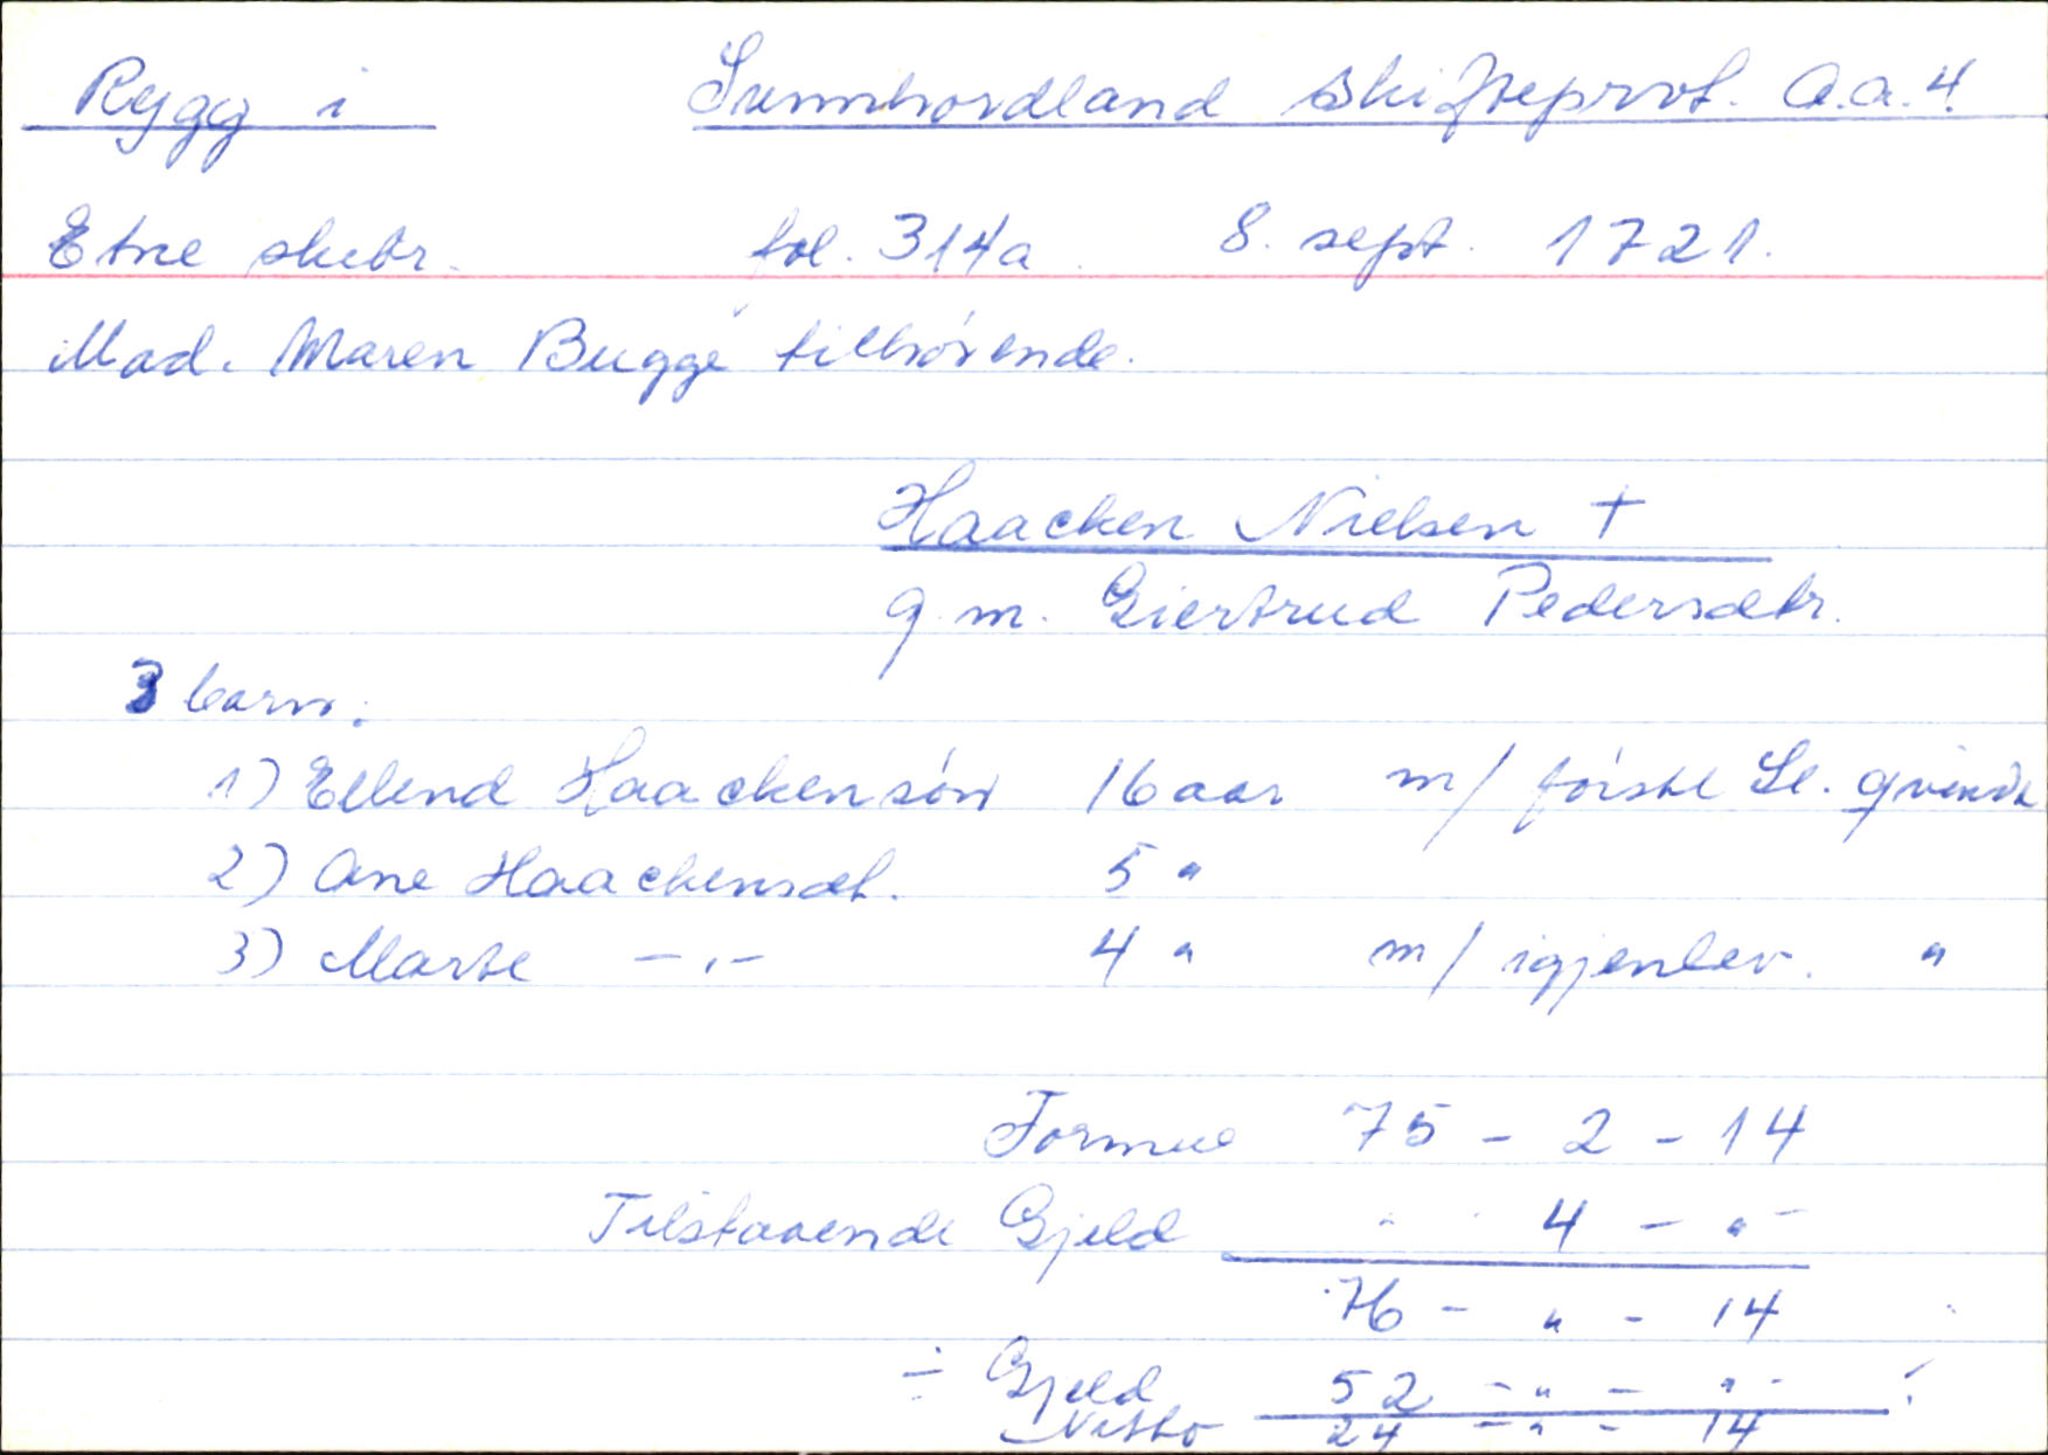 Rygg i Sunnhordland Skifteprot. A.a.4.
Etne skibr. fol. 314a 8. sept. 1721.
Mad. Maren Bugge tilhørende.
Haacken Nielsen †
g. m. Giertrud Pedersdtr.
3 barn:
1) Ellend Haackensøn 16 aar m/ første Sl. qvinde
2) Ane Haackensdt. 5 "
3) Marte -"- 4 " m/ igjenlev. "
Formue 75 - 2 - 14
Tilstaaende Gjeld " - 4 - " -
76 - " - 14
÷ Gjeld 52 - " - " -
Netto 24 - " - 14